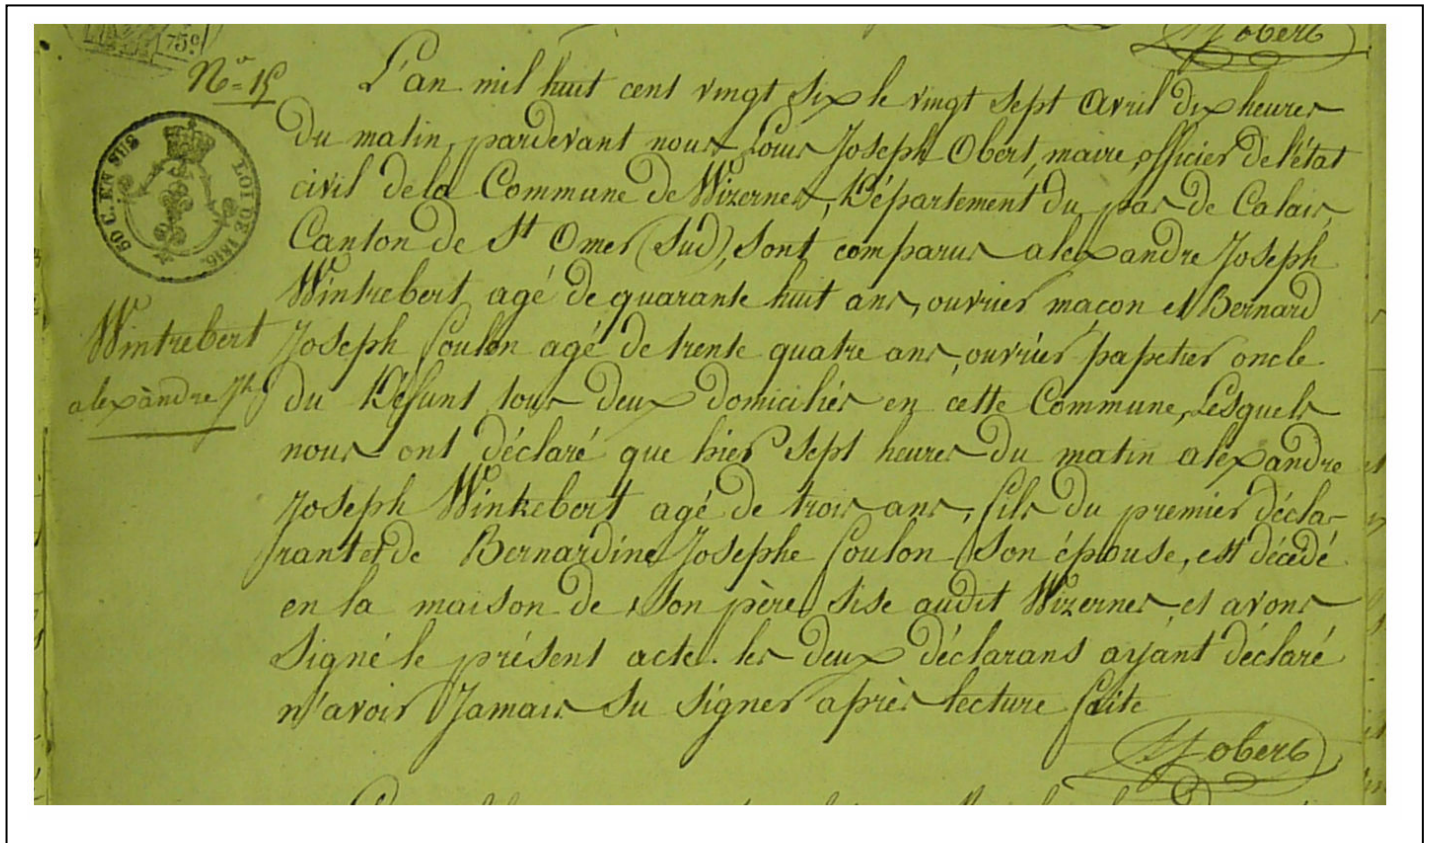 75c
Jobert
No = 15
L'an mil huit cent vingt six le vingt sept avril dix heures
Du matin, pardevant nous Louis Joseph Obert, maire, officier de l'état
civil de la Commune de Wizernes, Département du pas de Calais,
Canton de St Omer (Sud), sont comparus alexandre Joseph
Wintrebert agé de quarante huit ans, ouvrier maçon et Bernard
Joseph Coulon agé de trente quatre ans, ouvrier papetier oncle
du Défunt tous deux domiciliés en cette Commune, Lesquels
nous ont déclaré que hier sept heures du matin alexandre
Joseph Wintrebert agé de trois ans, fils du premier décla-
rant et de Bernardine Josephe Coulon son épouse, est décédé
en la maison de son père sise audit Wizernes et avons
Signé le présent acte. les deux déclarans ayant déclaré
n'avoir Jamais su signer après lecture faite
50 C. EN SUS
LOI DE 1816
Wintrebert
alexandre Jh
Jobert